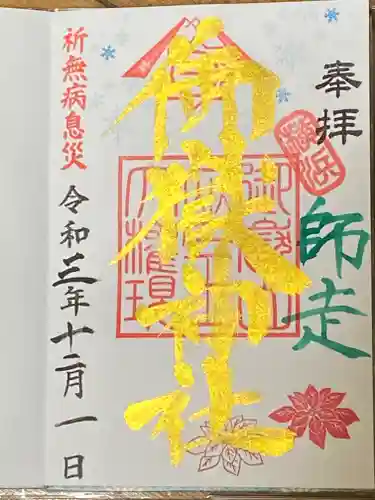 奉拝
師走
御嶽神社
祈無病息災
令和三年十二月一日